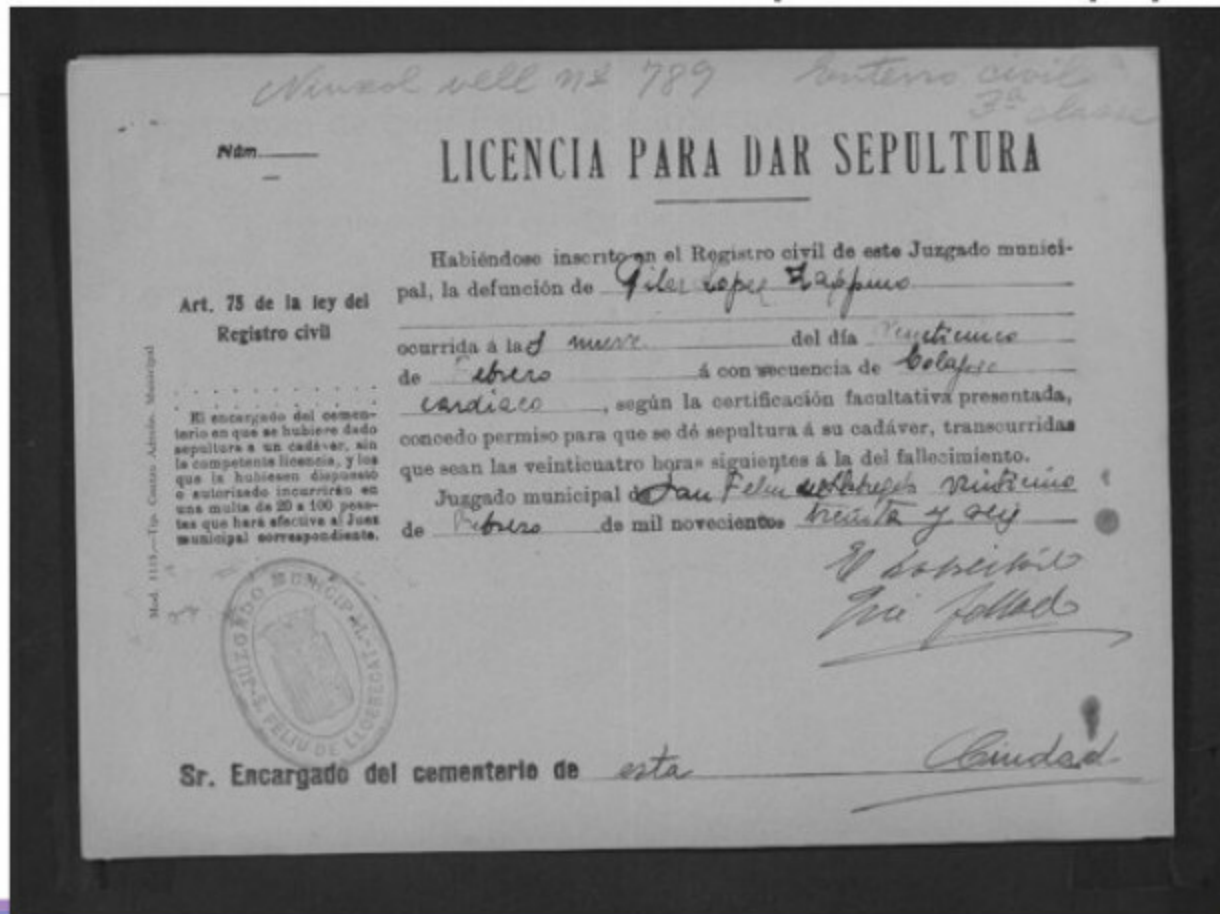 Ninxol vell nº 789 Enterro civil
3ª classe
Núm.
LICENCIA PARA DAR SEPULTURA
Art. 75 de la ley del
Registro civil
El encargado del cemen-
terio en que se hubiere dado
sepultura a un cadáver, sin
la competente licencia, y los
que la hubiesen dispuesto
o autorizado incurrirán en
una multa de 20 a 100 pese-
tas que hará efectiva el Juez
municipal correspondiente.
Habiéndose inscrito en el Registro civil de este Juzgado munici-
pal, la defunción de Pilar Lopez
ocurrida á las nueve del día veinticinco
de Febrero á consecuencia de Colapso
cardiaco, según la certificación facultativa presentada,
concedo permiso para que se dé sepultura á su cadáver, transcurridas
que sean las veinticuatro horas siguientes á la del fallecimiento.
Juzgado municipal de San Feliu de Llobregat veinticinco
de Febrero de mil novecientos treinta y seis
JUZGADO MUNICIPAL
S. FELIU DE LLOBREGAT
Sr. Encargado del cementerio de esta Ciudad